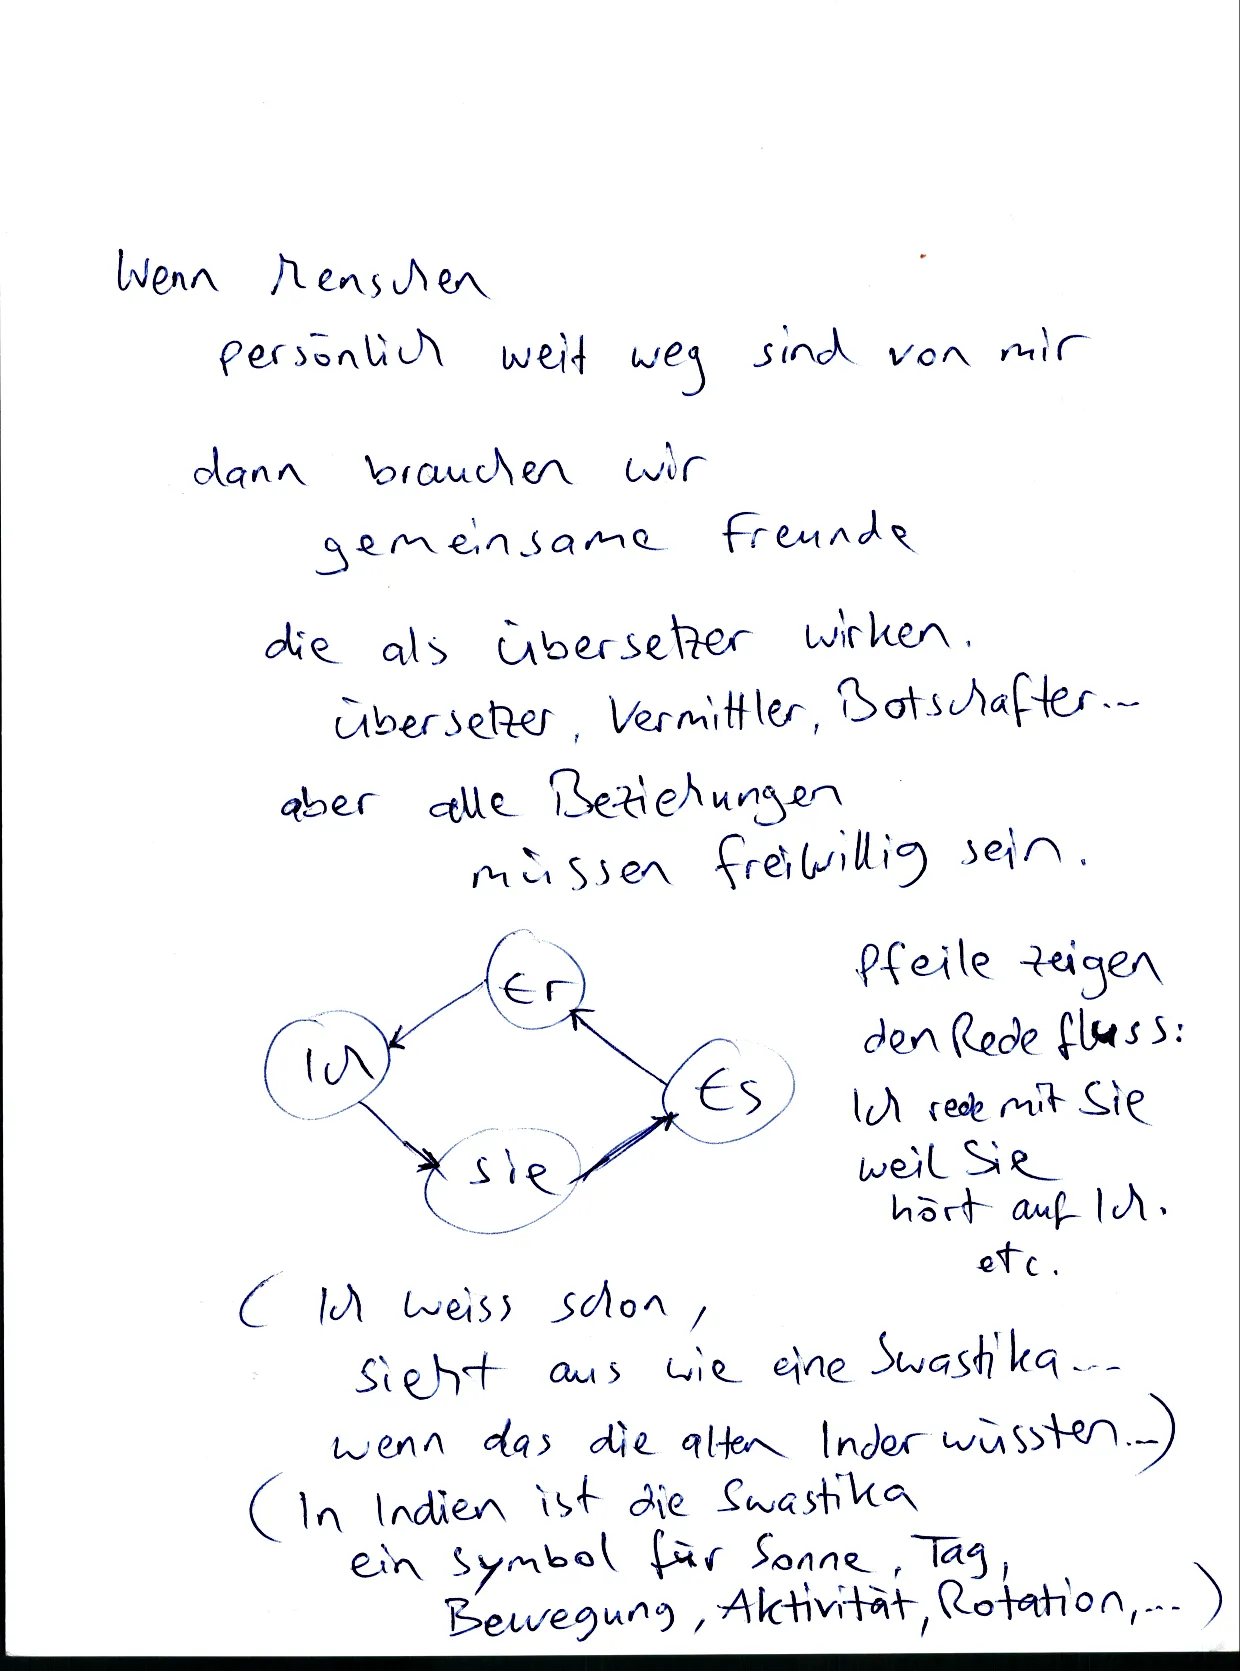 Wenn Menschen
persönlich weit weg sind von mir
dann brauchen wir
gemeinsame Freunde
die als Übersetzer wirken.
Übersetzer, Vermittler, Botschafter...
aber alle Beziehungen
müssen freiwillig sein.
Er
Ich
Es
Sie
Pfeile zeigen
den Redefluss:
Ich rede mit Sie
weil Sie
hört auf Ich.
etc.
(Ich weiss schon,
sieht aus wie eine Swastika...
wenn das die alten Inder wüssten...)
(In Indien ist die Swastika
ein Symbol für Sonne, Tag,
Bewegung, Aktivität, Rotation,...)